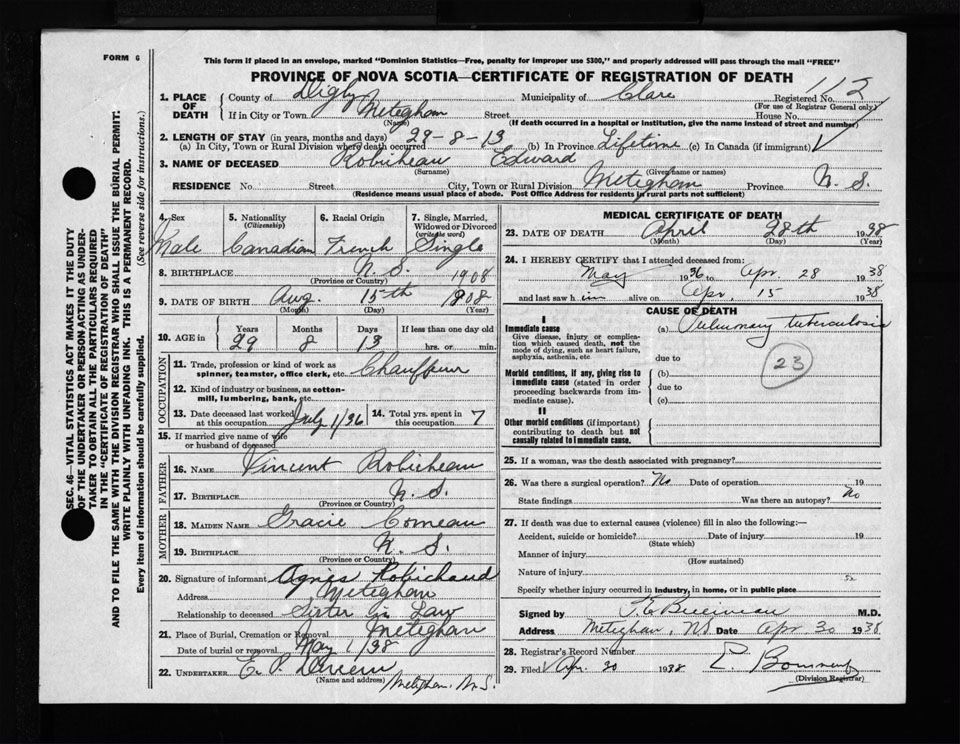 FORM 6
This form if placed in an envelope, marked "Dominion Statistics—Free, penalty for improper use $300," and properly addressed will pass through the mail "FREE"
PROVINCE OF NOVA SCOTIA—CERTIFICATE OF REGISTRATION OF DEATH
SEC. 46—VITAL STATISTICS ACT MAKES IT THE DUTY
OF THE UNDERTAKER OR PERSON ACTING AS UNDER-
TAKER TO OBTAIN ALL THE PARTICULARS REQUIRED
IN THE "CERTIFICATE OF REGISTRATION OF DEATH"
AND TO FILE THE SAME WITH THE DIVISION REGISTRAR WHO SHALL ISSUE THE BURIAL PERMIT.
WRITE PLAINLY WITH UNFADING INK. THIS IS A PERMANENT RECORD.
Every item of information should be carefully supplied. (See reverse side for instructions.)
1. PLACE OF DEATH County of Digby Municipality of Clare Registered No. 112
(For use of Registrar General only)
If in City or Town Meteghan Street House No.
(Name) (If death occurred in a hospital or institution, give the name instead of street and number)
2. LENGTH OF STAY (in years, months and days)
(a) In City, Town or Rural Division where death occurred 29-8-13 (b) In Province Lifetime (c) In Canada (if immigrant)
3. NAME OF DECEASED Robicheau Edward
(Surname) (Given name or names)
RESIDENCE No. Street City, Town or Rural Division Meteghan Province N. S.
(Residence means usual place of abode. Post Office Address for residents in rural parts not sufficient)
4. Sex 5. Nationality (Citizenship) 6. Racial Origin 7. Single, Married, Widowed or Divorced (write the word)
Male Canadian French Single
8. BIRTHPLACE N. S.
(Province or Country) 1908
9. DATE OF BIRTH Aug. 15th 1808
(Month) (Day) (Year)
10. AGE in Years Months Days If less than one day old
29 8 13 hrs. or min.
OCCUPATION
11. Trade, profession or kind of work as spinner, teamster, office clerk, etc. Chauffeur
12. Kind of industry or business, as cotton-mill, lumbering, bank, etc.
13. Date deceased last worked at this occupation July 1/36 14. Total yrs. spent in this occupation 7
15. If married give name of wife or husband of deceased
FATHER
16. NAME Vincent Robicheau
17. BIRTHPLACE N. S.
(Province or Country)
MOTHER
18. MAIDEN NAME Gracie Comeau
19. BIRTHPLACE N. S.
(Province or Country)
20. Signature of informant Agnes Robichaud
Address Meteghan
Relationship to deceased Sister in Law
21. Place of Burial, Cremation or Removal Meteghan
Date of burial or removal May 1/38
22. UNDERTAKER E. P.
(Name and address) Meteghan, N.S.
MEDICAL CERTIFICATE OF DEATH
23. DATE OF DEATH April 28th 1938
(Month) (Day) (Year)
24. I HEREBY CERTIFY that I attended deceased from:
May 1936 to Apr. 28 1938
and last saw h im alive on Apr. 15 1938
CAUSE OF DEATH
I
Immediate cause (a) Pulmonary tuberculosis
Give disease, injury or complication which caused death, not the mode of dying, such as heart failure, asphyxia, asthenia, etc.
due to
23
Morbid conditions, if any, giving rise to immediate cause (stated in order proceeding backwards from immediate cause).
(b)
due to
(c)
II
Other morbid conditions (if important) contributing to death but not causally related to immediate cause.
25. If a woman, was the death associated with pregnancy?
26. Was there a surgical operation? No Date of operation 19
State findings Was there an autopsy? No
27. If death was due to external causes (violence) fill in also the following:—
Accident, suicide or homicide? Date of injury 19
(State which)
Manner of injury
(How sustained)
Nature of injury
Specify whether injury occurred in industry, in home, or in public place
Signed by M.D.
Address Meteghan, NS Date Apr 30 1938
28. Registrar's Record Number
29. Filed Apr. 30 1938
(Division Registrar)